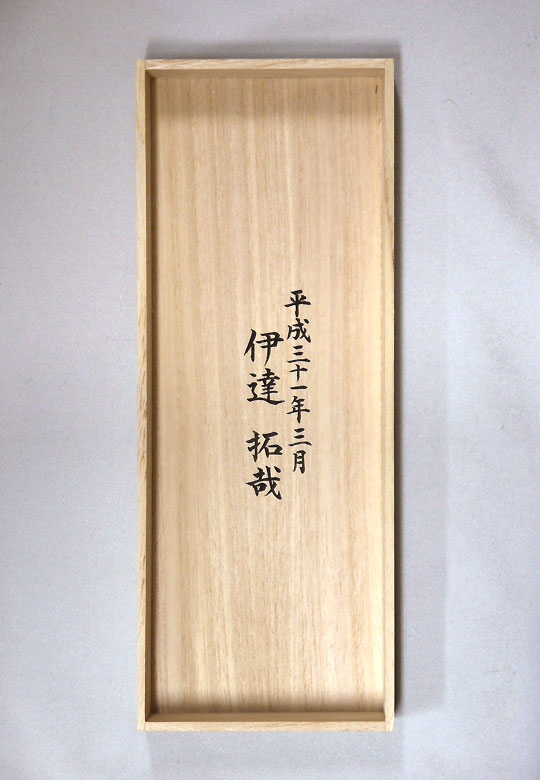 平成三十一年三月
伊達 拓哉